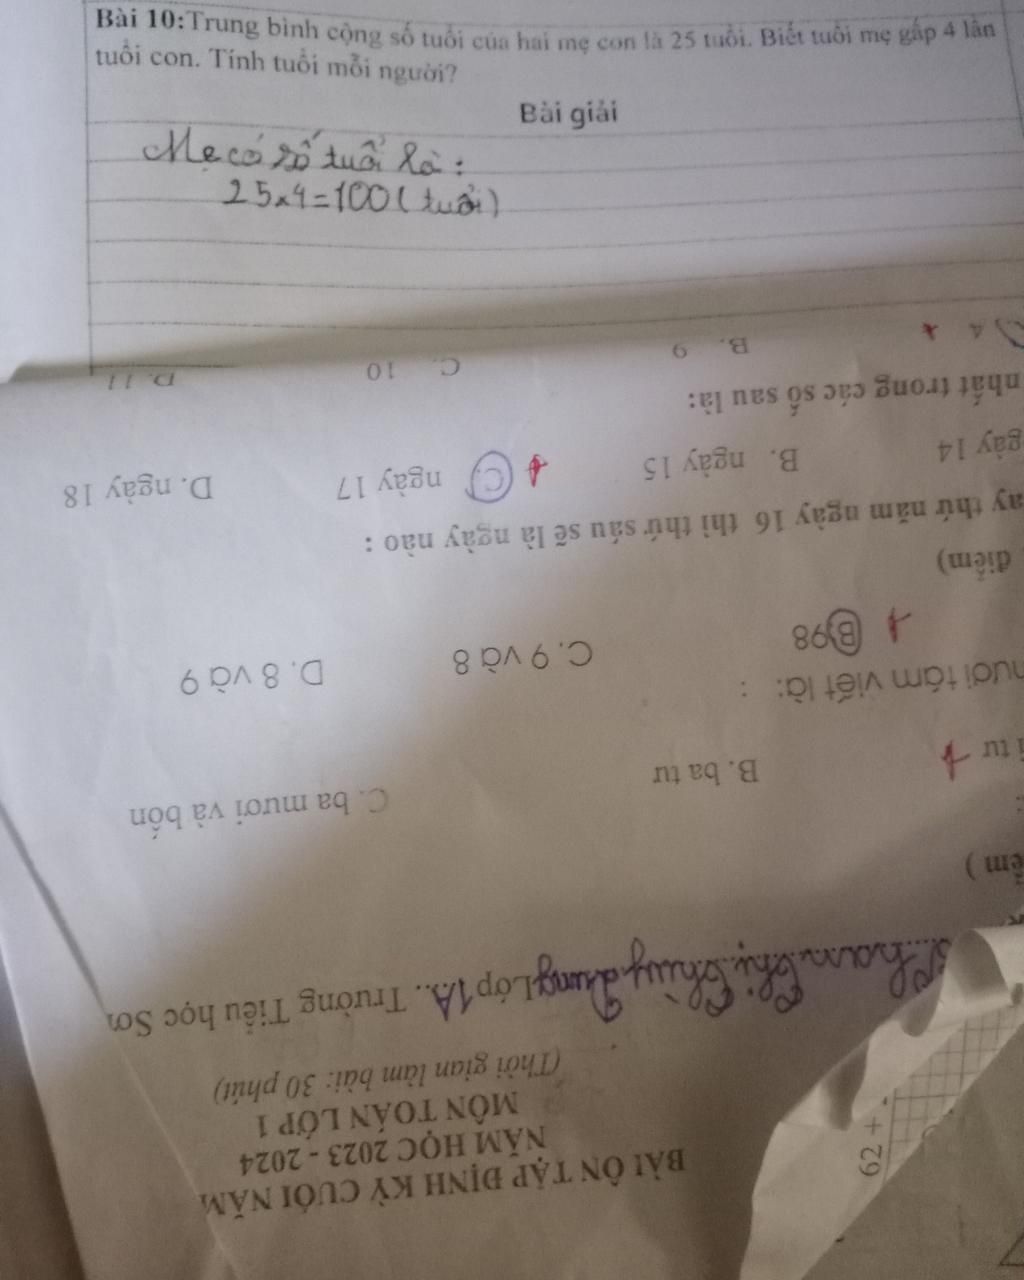 Bài 10:Trung bình cộng số tuổi của hai mẹ con là 25 tuổi. Biết tuổi mẹ gấp 4 lần
tuổi con. Tính tuổi mỗi người?
Bài giải
Mẹ có số tuổi là :
25x4=100(tuổi)
BÀI ÔN TẬP ĐỊNH KỲ CUỐI NĂM
NĂM HỌC 2023 - 2024
MÔN TOÁN LỚP 1
(Thời gian làm bài: 30 phút)
Phan Thị Thùy Dung Lớp 1A.. Trường Tiểu học Sơn
ểm )
:
i tư B. ba tư C. ba mươi và bốn
ươi tám viết là: :
B 98 C. 9 và 8 D. 8 và 9
điểm)
ay thứ năm ngày 16 thì thứ sáu sẽ là ngày nào :
gày 14 B. ngày 15 C. ngày 17 D. ngày 18
nhất trong các số sau là:
4 B. 9 C. 10 D. 11
62 +